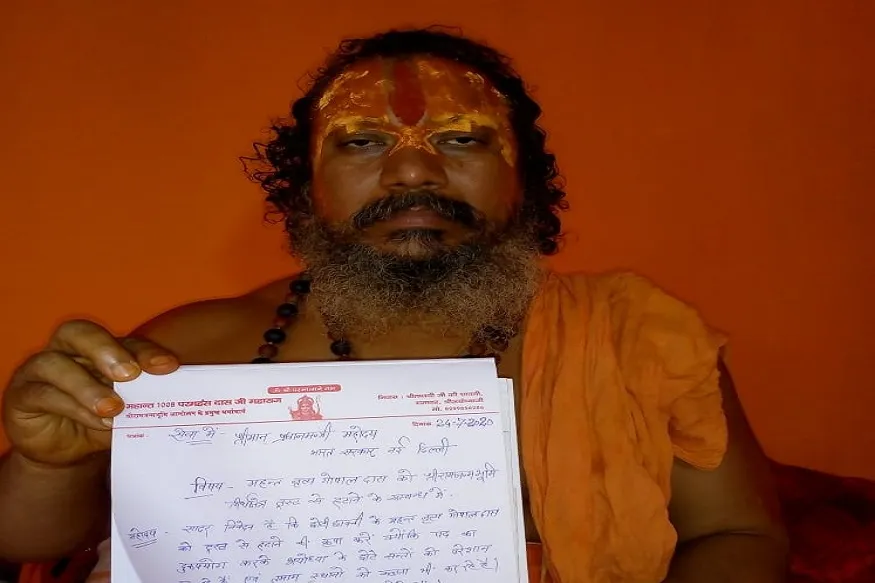 ॐ श्री परमात्मने नमः
महान्त 1008 परमहंस दास जी महाराज
निवास : श्रीतपस्वी जी की छावनी,
श्रीरामजन्मभूमि आन्दोलन के प्रमुख धर्माचार्य
रामघाट, श्रीअयोध्याजी
मो.
पत्रांक :
दिनांक 24-7-2020
सेवा में - श्रीमान प्रधानमन्त्री महोदय
भारत सरकार नई दिल्ली
विषय - महन्त नृत्य गोपाल दास को श्रीरामजन्मभूमि
तीर्थक्षेत्र ट्रस्ट से हटाने के सम्बन्ध में.
महोदय - सादर निवेदन है कि महन्त नृत्य गोपाल दास
को ट्रस्ट से हटाने की कृपा करें क्योंकि पद का
दुरुपयोग करके अयोध्या के छोटे सन्तों को परेशान
एवं तमाम स्थानों को कब्जा भी कर